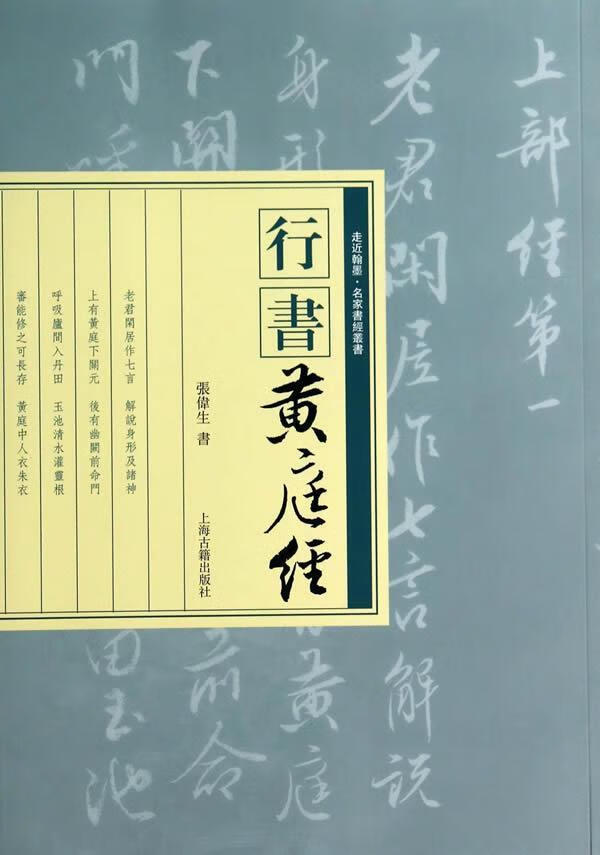 上部經第一
老君閑居作七言解説
身形
黄庭
下關
前命
門呼
田玉池
走近翰墨·名家書經叢書
行書
黄庭經
張偉生 書
上海古籍出版社
老君閑居作七言 解說身形及諸神
上有黃庭下關元 後有幽闕前命門
呼吸廬間入丹田 玉池清水灌靈根
審能修之可長存 黃庭中人衣朱衣